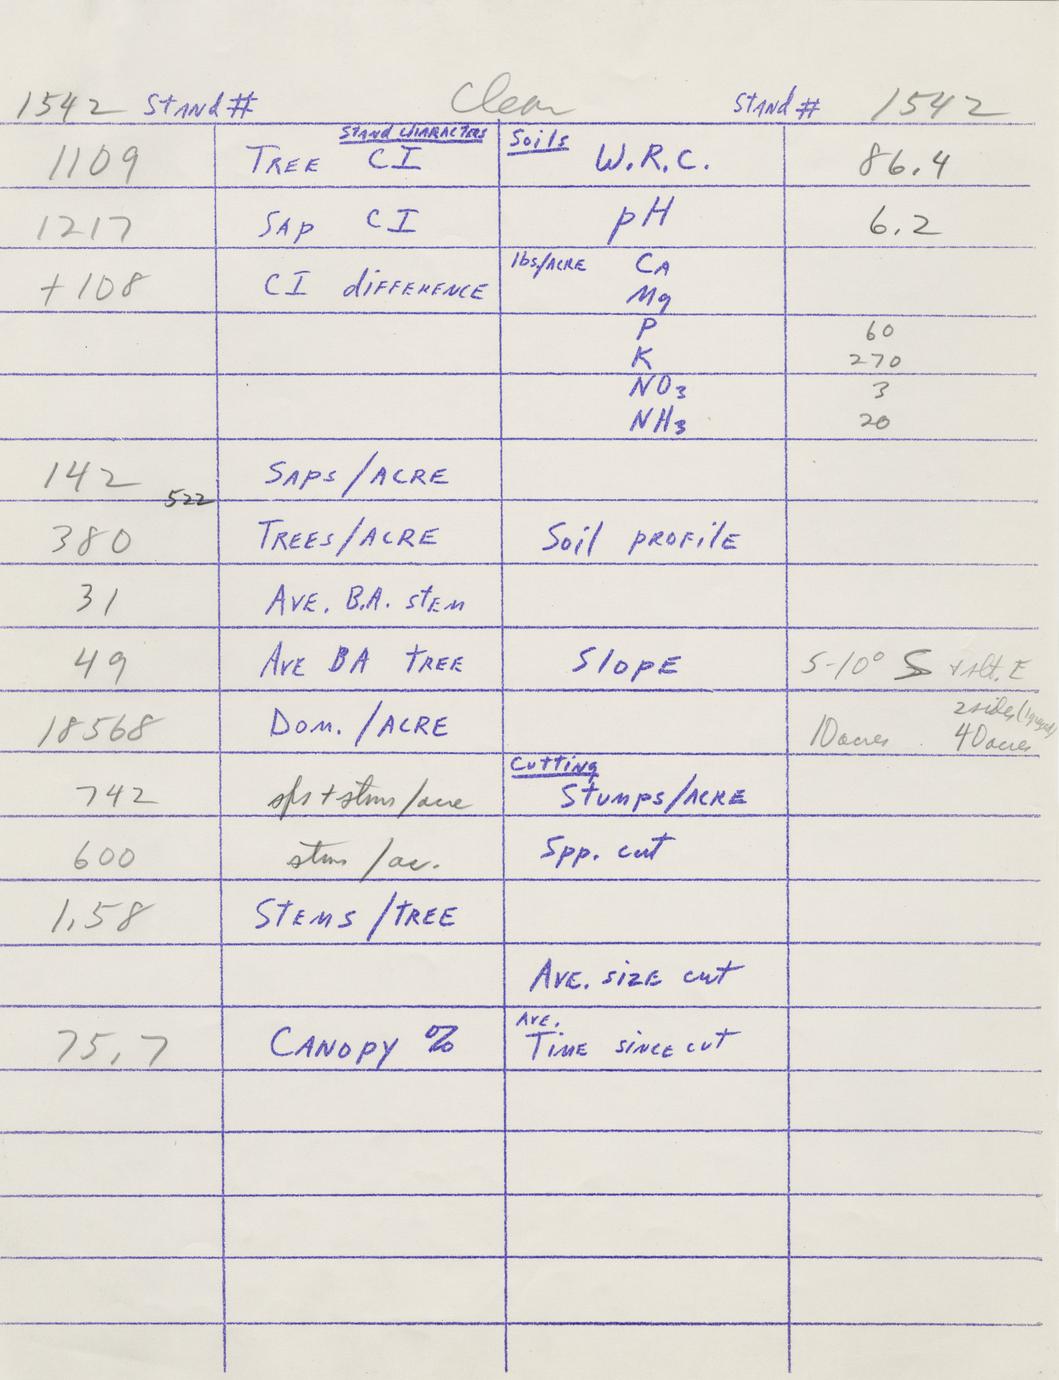 1542 Stand # Clean Stand # 1542
Stand Characters Soils
1109 Tree CI W.R.C. 86.4
1217 Sap CI pH 6.2
+108 CI difference lbs/Acre Ca
Mg
P 60
K 270
NO3 3
NH3 20
142 Saps/Acre
522
380 Trees/Acre Soil profile
31 Ave. B.A. stem
49 Ave BA tree Slope 5-10° S + slt. E
2 sides
18568 Dom./Acre 10 acres 40 acres
Cutting
742 sps + stms/acre Stumps/Acre
600 stms/ac. Spp. cut
1.58 Stems/tree
Ave. size cut
75.7 Canopy % Ave. Time since cut